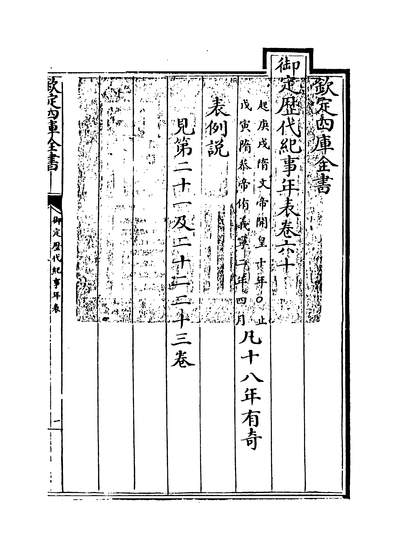 欽定四庫全書
御定歴代紀事年表卷六十
起庚戌隋文帝開皇十年○止
戊寅隋恭帝侑義寧二年四月凡十八年有奇
表例説
見第二十一及二十二二十三卷
欽定四庫全書
御定歴代紀事年表
一